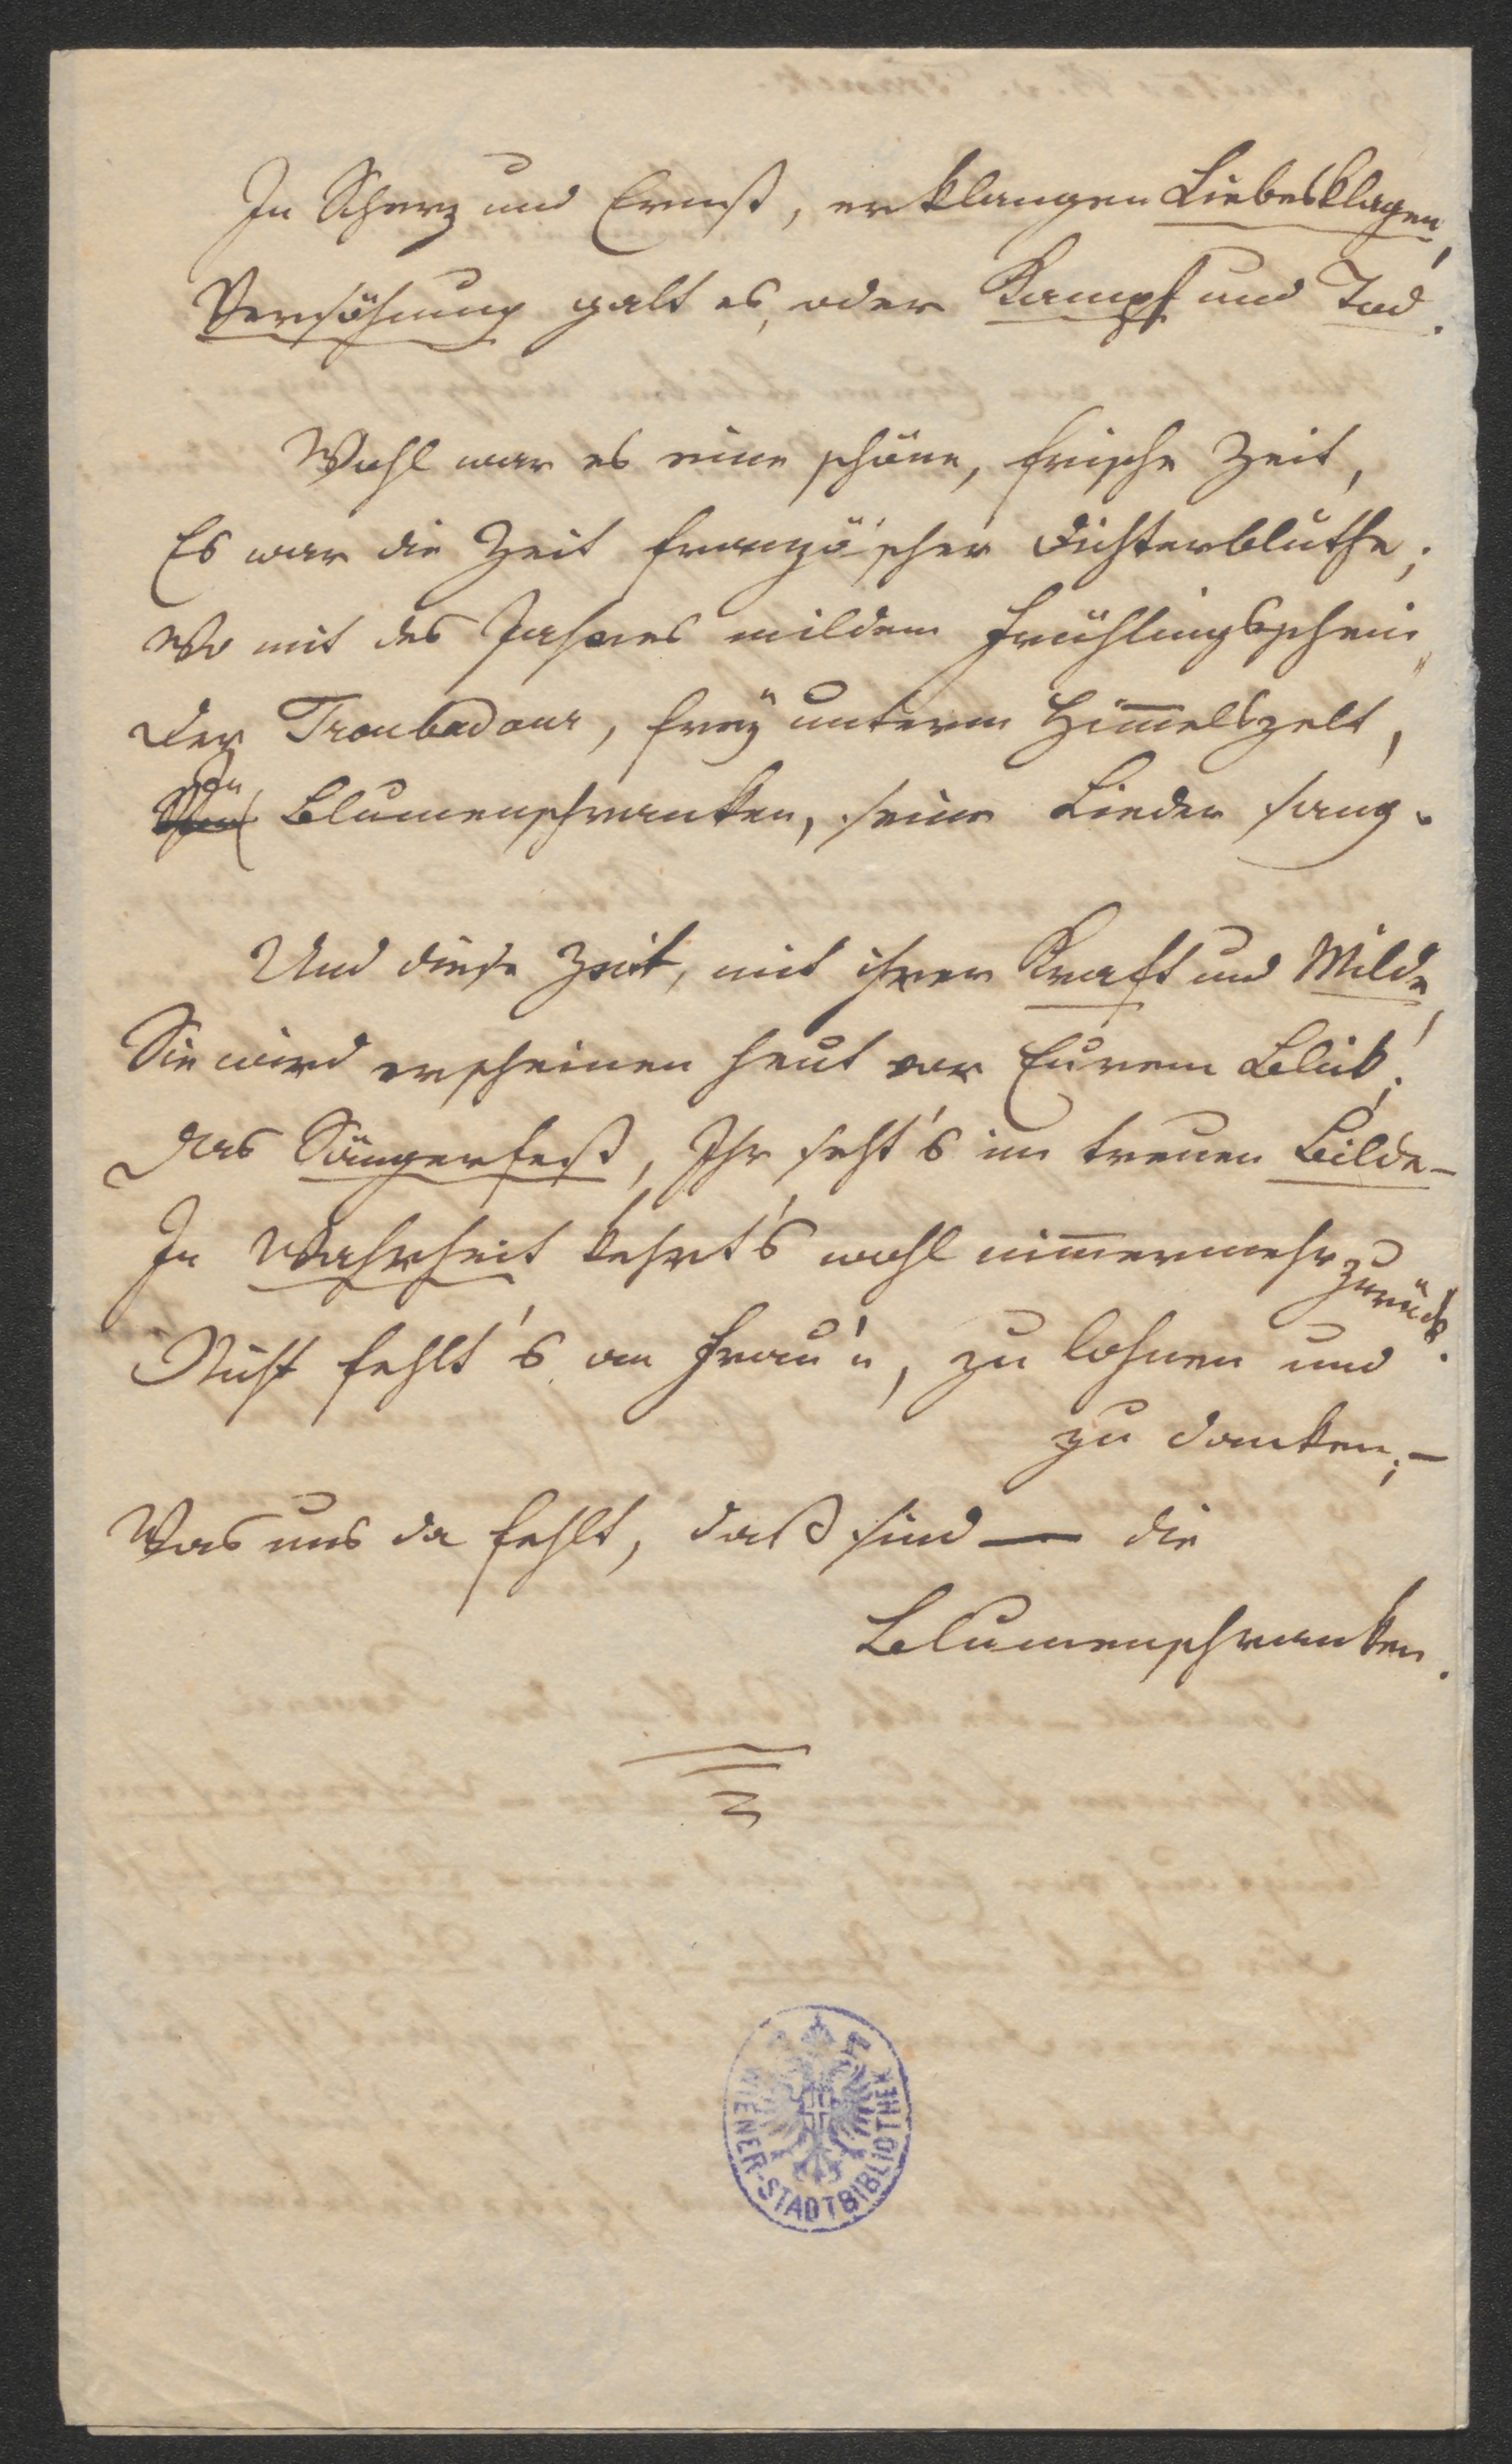 In Scherz und Ernst, erklangen Liebesklagen,
Versöhnung galt es, oder Kampf und Tod.
Wohl war es eine schöne, frische Zeit,
Es war die Zeit französ'scher Dichterblüthe;
Wo mit des Jahres mildem Frühlingsschein,
Der Troubadour, freÿ unterm Him̅elszelt,
In
Blumenschranken, seine Lieder sang.
Und diese Zeit, mit ihrer Kraft und Milde,
Sie wird erscheinen heut vor Eurem Blick!
Das Sängerfest, Ihr seht's im treuen Bilde –
In Wahrheit kehrt's wohl nim̅ermehr zurück.
Nicht fehlt's an Frau'n, zu lohnen und
zu danken; –
Was uns da fehlt, daß sind — die
Blumenschranken.
WIENER-STADTBIBLIOTHEK